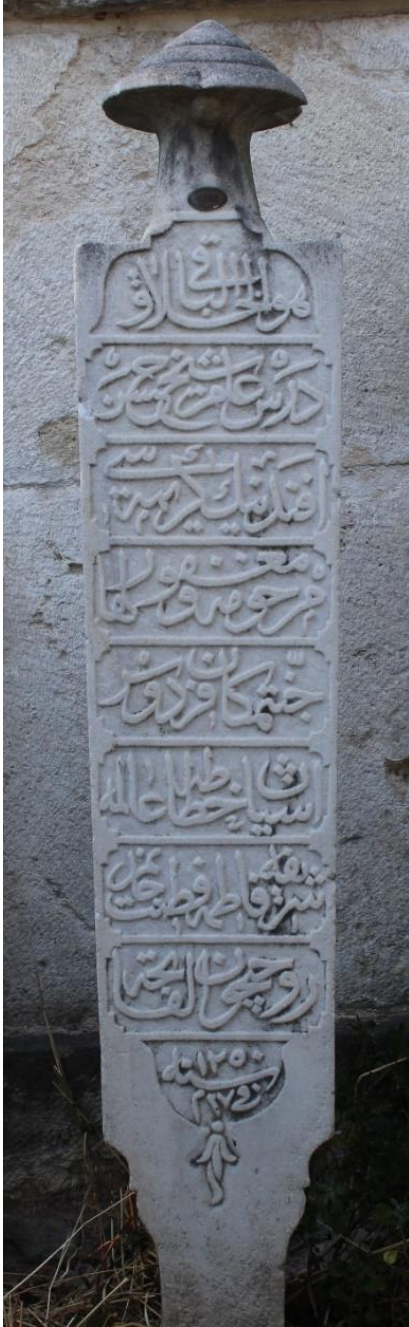 هو الخلاق الباقی
درس عام شیخ حسین
افندینك كریمه سی
مرحومه و مغفور لها
جنتمکان فردوس
آشیان خطاطه عالمه
شریفه فاطمه فطنت خانم
روحیچون الفاتحه
سنه ١٢٥٠